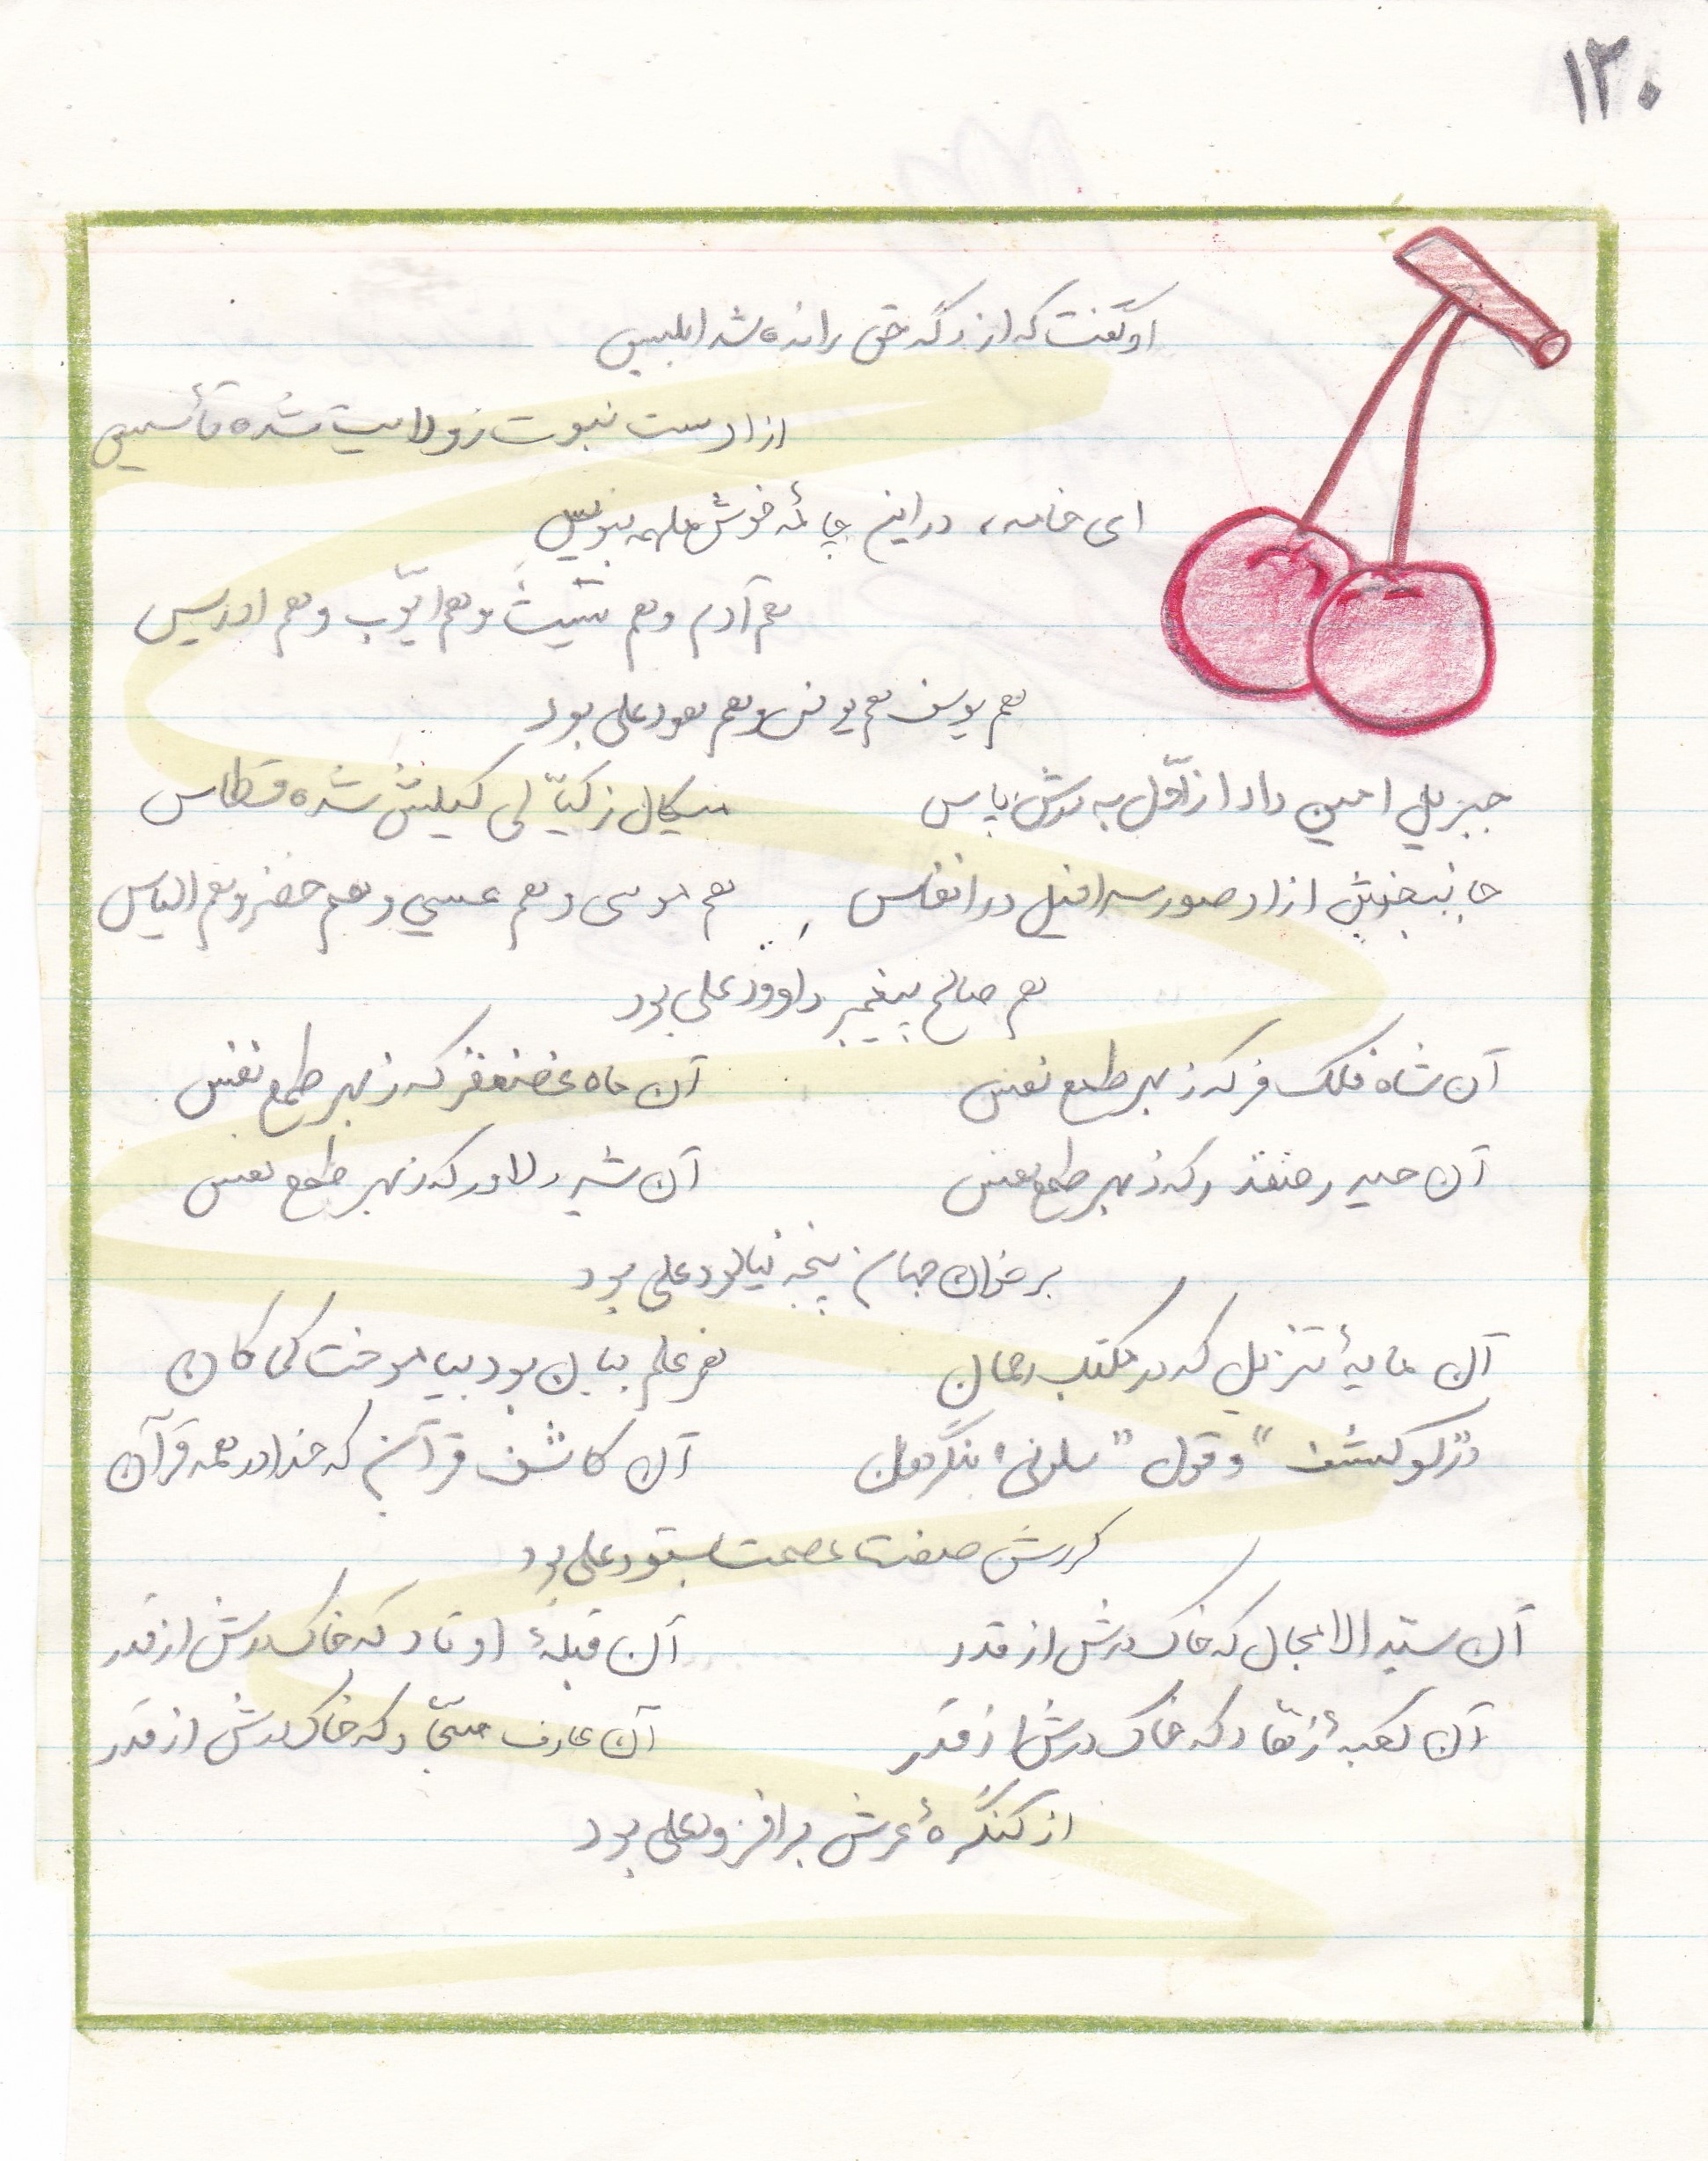 ۱۳۰
او گفت که از درگه حق رانده شد ابلیس
از اوست نبوت ز ولایت شده تأسیس
ای خامه، در این چامهٔ خوش بنویس
هم آدم و هم شیث و هم ایّوب و هم ادریس
هم یوسف هم یونس و هم هود علی بود
جبریل امین داد از اوّل به درش پاس میکال ز کیّالی کیلش شده قسطاس
جانبخش از او صور سرافیل در انفاس هم موسی و هم عیسی و هم خضر و هم الیاس
هم صالح پیغمبر داوود علی بود
آن شاه فلک فر که ز بهر طمع نفس آن ماه غضنفر که ز بهر طمع نفس
آن حیدر صفدر که ز بهر طمع نفس آن شیر دلاور که ز بهر طمع نفس
بر خوان جهان پنجه نیالود علی بود
آن مایهٔ تنزیل که در مکتب رحمان هر علم بیان بود بیاموخت کی کان
در "لو کشف" و قول "سلونی" بنگر هان آن کاشف قرآن که خدا در همه قرآن
کردش صفت عصمت بستود علی بود
آن سیّد الامجال که خاک درش از قدر آن قبلهٔ اوتاد که خاک درش از قدر
آن کعبهٔ که خاک درش از قدر آن عارف سجّاد که خاک درش از قدر
از کنگرهٔ عرش برافزود علی بود